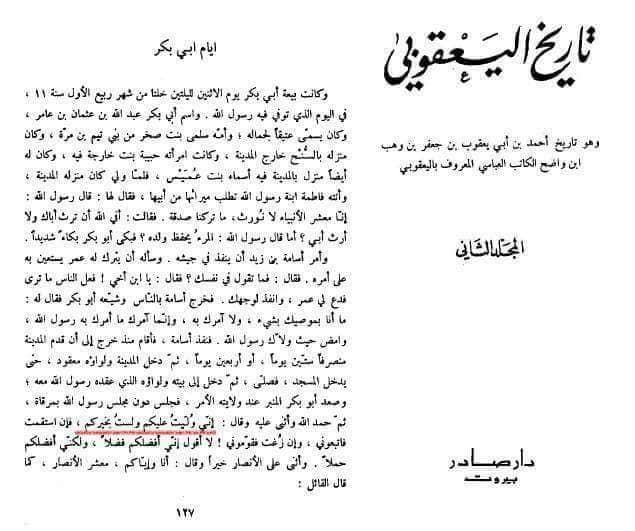 تاريخ اليَعْقوبي
وهو تاريخ أحمد بن أبي يعقوب بن جعفر بن وهب
ابن واضح الكاتب العباسي المعروف باليعقوبي
المجلد الثاني
دار صادر
بيروت
ايام ابي بكر
وكانت بيعة أبي بكر يوم الاثنين لليلتين خلتا من شهر ربيع الأول سنة ١١ ،
في اليوم الذي توفي فيه رسول الله . واسم أبي بكر عبد الله بن عثمان بن عامر ،
وكان يسمّى عتيقاً لجماله ؛ وأمّه سلمى بنت صخر من بني تيم بن مرّة ، وكان
منزله بالسُّنْح خارج المدينة ، وكانت امرأته حبيبة بنت خارجة فيه ، وكان له
أيضاً منزل بالمدينة فيه أسماء بنت عُمَيْس ، فلمّا ولي كان منزله المدينة ،
وأتته فاطمة ابنة رسول الله تطلب ميراثها من أبيها ، فقال لها : قال رسول الله :
إنّا معشر الأنبياء لا نُورث، ما تركنا صدقة . فقالت : أفي الله أن ترث أباك ولا
أرث أبي ؟ أما قال رسول الله : المرءُ يحفظ ولده ؟ فبكى أبو بكر بكاءً شديداً .
وأمر أسامة بن زيد أن ينفذ في جيشه . وسأله أن يترك له عمر يستعين به
على أمره . فقال : فما تقول في نفسك ؟ فقال : يا ابن أخي ! فعل الناس ما ترى
فدع لي عمر ، وانفذ لوجهك . فخرج أسامة بالنّاس وشيّعه أبو بكر فقال له :
ما أنا بموصيك بشيء ، ولا آمرك به ، وإنّما آمرك ما أمرك به رسول الله ،
وامض حيث ولاّك رسول الله . فنفذ أسامة ، فأقام منذ خرج إلى أن قدم المدينة
منصرفاً ستّين يوماً ، أو أربعين يوماً ، ثمّ دخل المدينة ولواؤه معقود ، حتّى
يدخل المسجد ، فصلّى ، ثمّ دخل إلى بيته ولواؤه الذي عقده رسول الله معه ؛
وصعد أبو بكر المنبر عند ولايته الأمر ، فجلس دون مجلس رسول الله بمرقاة ،
ثمّ حمد الله وأثنى عليه وقال : إنّي وُلّيتُ عليكم ولستُ بخيركم ، فإن استقمت
فاتبعوني ، وإن زُغت فقوّموني ! لا أقول إنّي أفضلكم فضلاً ، ولكنّي أفضلكم
حملاً . وأثنى على الأنصار خيراً وقال : أنا وإيّاكم ، معشر الأنصار ، كما
قال القائل :
١٢٧